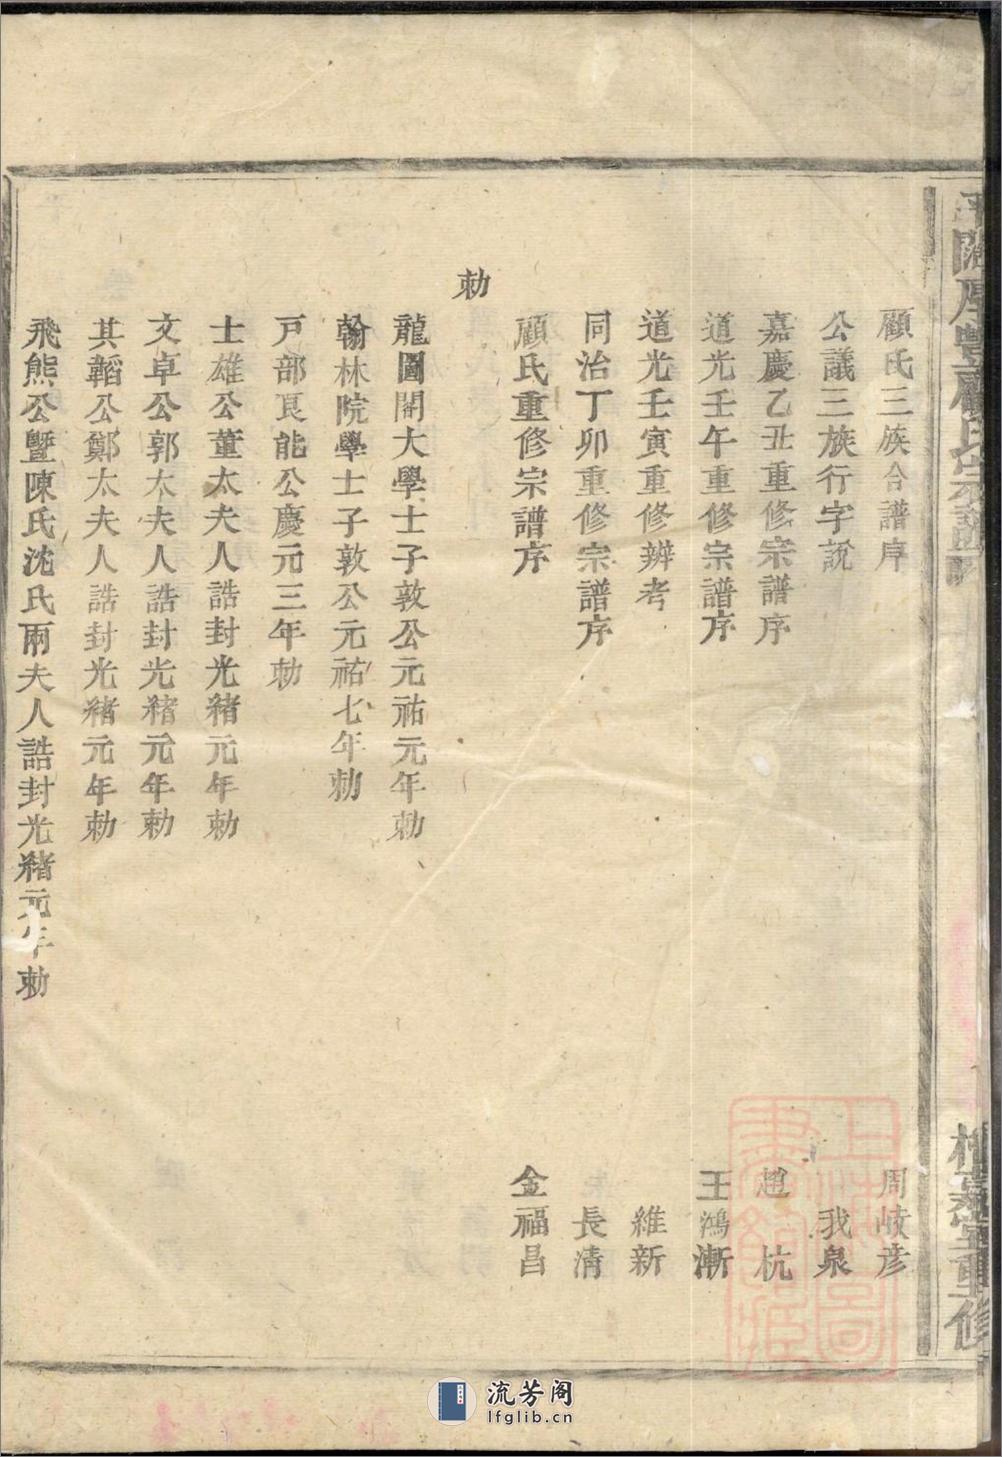 顧氏三族合譜序 周岐彥
公議三族行字說 我泉
嘉慶乙丑重修宗譜序 趙杭
道光壬午重修宗譜序 王鴻漸
道光壬寅重修辨考 維新
同治丁卯重修宗譜序 長清
顧氏重修宗譜序 金福昌
勅
龍圖閣大學士子敦公元祐元年勅
翰林院學士子敦公元祐七年勅
戸部良能公慶元三年勅
士雄公董太夫人誥封光緒元年勅
文卓公郭太夫人誥封光緒元年勅
其韜公鄭太夫人誥封光緒元年勅
飛熊公暨陳氏沈氏兩夫人誥封光緒元年勅
顧氏宗譜
重修
上海圖書館藏
流芳阁
lfglib.cn